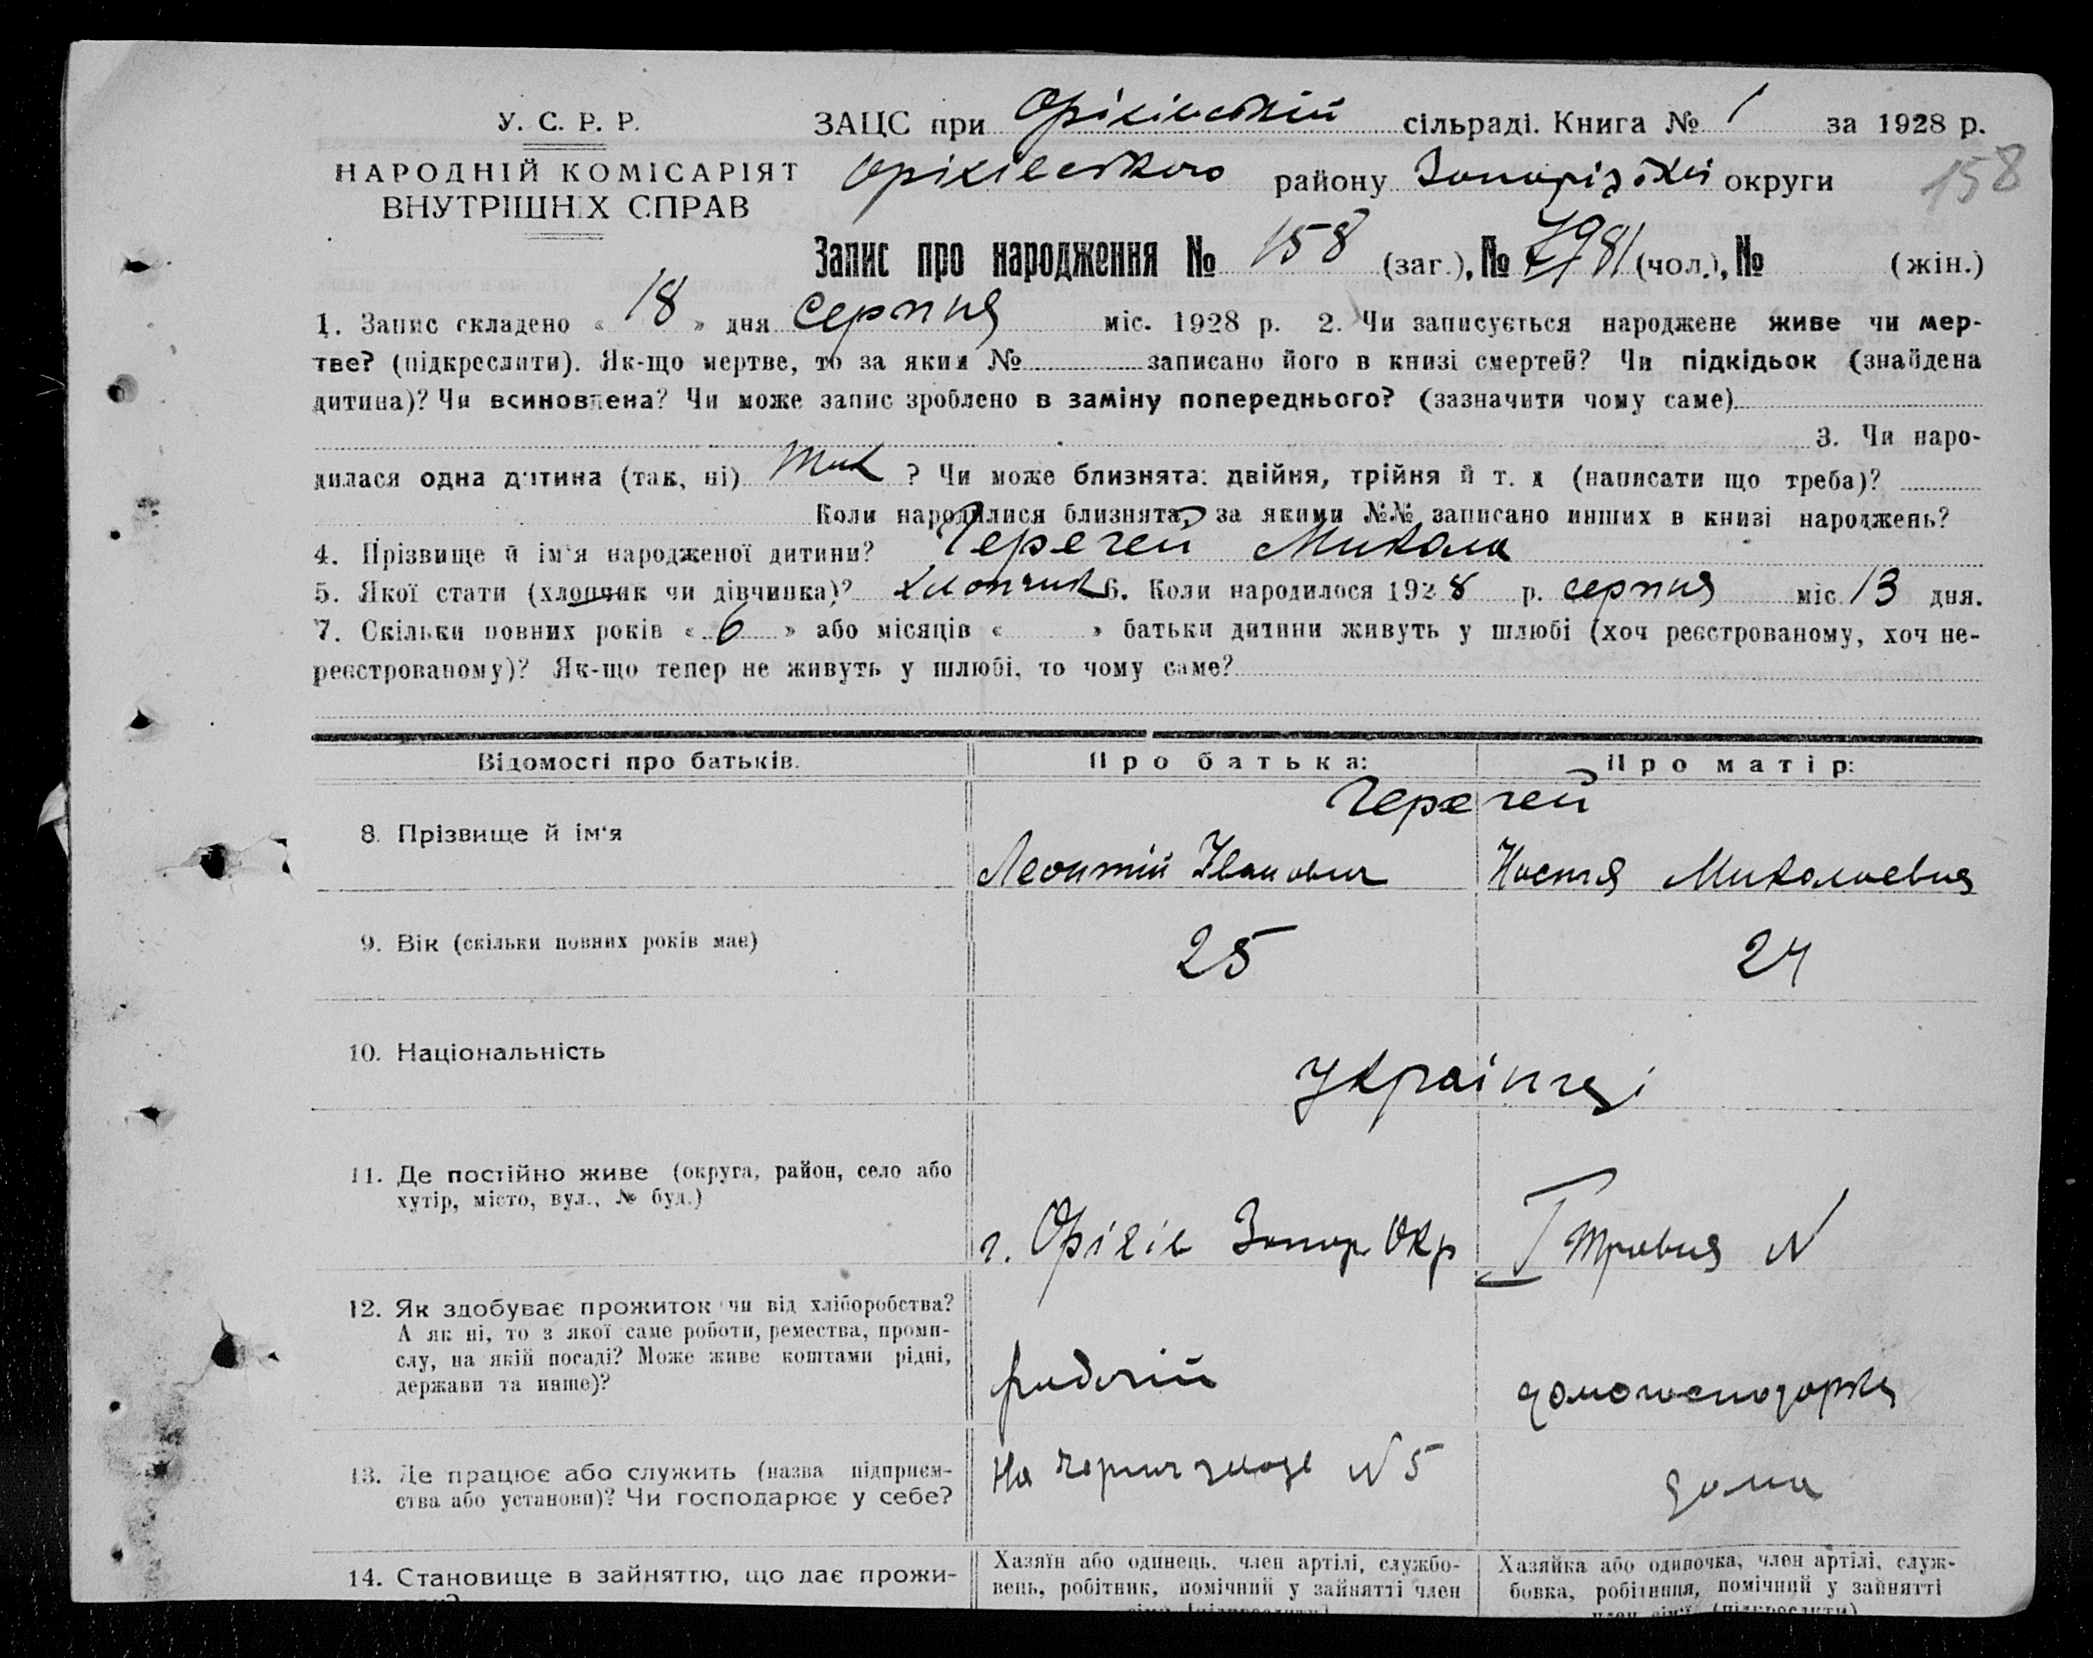 У. С. Р. Р.
НАРОДНІЙ КОМІСАРІЯТ
ВНУТРІШНІХ СПРАВ
ЗАЦС при Оріхівській сільраді. Книга № 1 за 1928 р.
Оріхівського району Запорізької округи
158
Запис про народження № 158 (заг.), № 81 (чол.), № (жін.)
1. Запис складено « 18 » дня серпня міс. 1928 р. 2. Чи записується народжене живе чи мер-
тве? (підкреслити). Як-що мертве, то за яким № записано його в книзі смертей? Чи підкідьок (знайдена
дитина)? Чи всиновлена? Чи може запис зроблено в заміну попереднього? (зазначити чому саме)
3. Чи наро-
дилася одна дитина (так, ні) так ? Чи може близнята: двійня, трійня й т. д (написати що треба)?
Коли народилися близнята, за якими №№ записано инших в книзі народжень?
4. Прізвище й ім'я народженої дитини? Черечей Микола
5. Якої стати (хлопчик чи дівчинка)? хлопчик 6. Коли народилося 1928 р. серпня міс. 13 дня.
7. Скільки повних років « 6 » або місяців « » батьки дитини живуть у шлюбі (хоч реєстрованому, хоч не-
реєстрованому)? Як-що тепер не живуть у шлюбі, то чому саме?
Відомості про батьків. Про батька: Про матір:
Черечей
8. Прізвище й ім'я Леонтій Іванович Настя Миколаевна
9. Вік (скільки повних років має) 25 24
10. Національність Українці
11. Де постійно живе (округа, район, село або
хутір, місто, вул., № буд.) г. Оріхів Запор Окр I Травня N
12. Як здобуває прожиток чи від хліборобства?
А як ні, то з якої саме роботи, ремества, проми-
слу, на якій посаді? Може живе коштами рідні,
держави та инше)? рабочій домогосподарка
13. Де працює або служить (назва підприєм-
ства або установи)? Чи господарює у себе? На N 5 дома
14. Становище в зайняттю, що дає прожи-
Хазяїн або одинець, член артілі, службо-
вець, робітник, помічний у зайнятті член
Хазяйка або одиночка, член артілі, служ-
бовка, робітниця, помічний у зайнятті
член сім'ї (підкреслити)